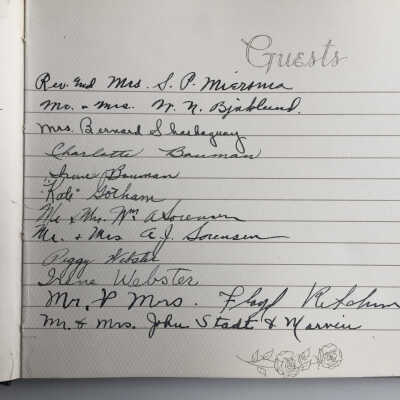 Guests
Rev. and Mrs. S. P. Miersma
Mr. & Mrs. W. N. Bjoklund.
Mrs. Bernard
Charlotte Bauman
Irene Bauman
"Kate" Gotham
Mr & Mrs. Wm A Sorensen
Mr. & Mrs A. J. Sorensen
Peggy Webster
Irene Webster
Mr. & Mrs. Floyd
Mr. & Mrs. John Stadt & Marvin